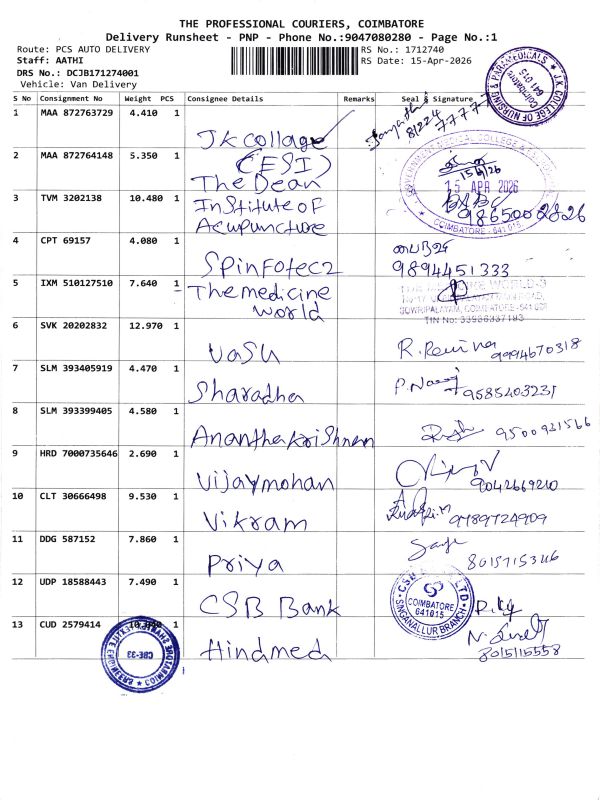 THE PROFESSIONAL COURIERS, COIMBATORE
Delivery Runsheet - PNP - Phone No.:9047080280 - Page No.:1
Route: PCS AUTO DELIVERY
RS No.: 1712740
Staff: AATHI
RS Date: 15-Apr-2026
DRS No.: DCJB171274001
Vehicle: Van Delivery
COLLEGE OF NURSING & PARAMEDICALS
Coimbatore
641 015
S No Consignment No Weight PCS Consignee Details Remarks Seal & Signature
1 MAA 872763729 4.410 1 JK collage
8/2224 77777
2 MAA 872764148 5.350 1 (ESI)
The Dean
15/4/26
15 APR 2026
3 TVM 3202138 10.480 1 Institute of
Acupuncture
9865002826
COIMBATORE - 641 015
4 CPT 69157 4.080 1 Spinfotec2
9894451333
5 IXM 510127510 7.640 1 The medicine
World
GOWRIPALAYAM, COIMBATORE-641
TIN No: 33936337193
6 SVK 20202832 12.970 1 Vasu
9994670318
7 SLM 393405919 4.470 1 Sharadha
9585403231
8 SLM 393399405 4.580 1 Ananthakrishnan
9500921566
9 HRD 7000735646 2.690 1 Vijaymohan
9042669210
10 CLT 30666498 9.530 1 Vikram
9789724909
11 DDG 587152 7.860 1 Priya
8015715346
12 UDP 18588443 7.490 1 CSB Bank
COIMBATORE
641015
SINGANALLUR BRANCH
13 CUD 2579414 1 Hindmed
8015115558
CBE-33
ENGINEERS
COIMBATORE